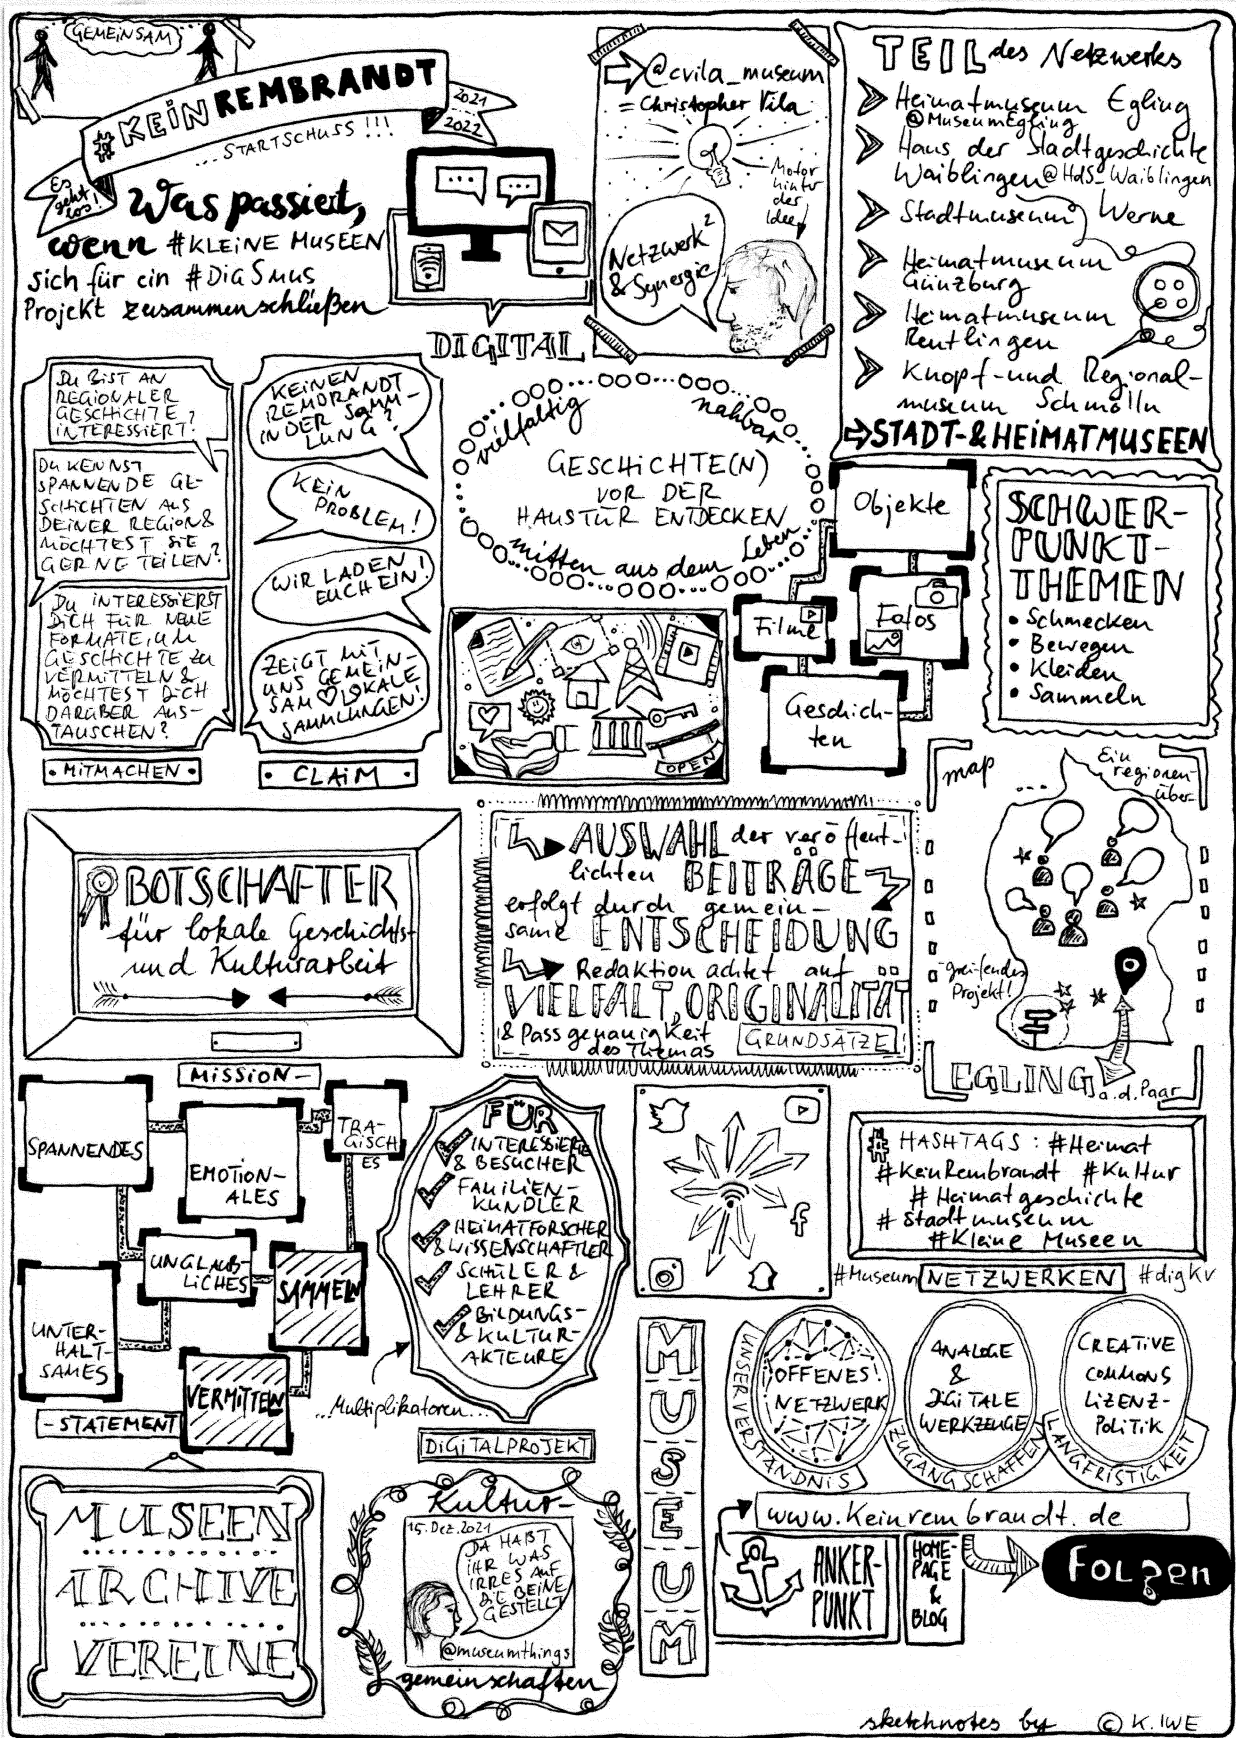 GEMEINSAM
#KEIN REMBRANDT
2021
2022
... STARTSCHUSS !!!
Es
geht
los!
Was passiert,
wenn #KLEINE MUSEEN
sich für ein #DigSmus
Projekt zusammenschließen
DIGITAL
@cvila_museum
= Christopher Vila
Motor
hinter
der
Idee
Netzwerk²
& Synergie
TEIL des Netzwerks
Heimatmuseum Egling
@MuseumEgling
Haus der Stadtgeschichte
Waiblingen @HdS_Waiblingen
Stadtmuseum Werne
Heimatmuseum
Günzburg
Heimatmuseum
Reutlingen
Knopf- und Regional-
museum Schmölln
STADT- & HEIMATMUSEEN
DU BIST AN
REGIONALER
GESCHICHTE
INTERESSIERT?
DU KENNST
SPANNENDE GE-
SCHICHTEN AUS
DEINER REGION &
MÖCHTEST SIE
GERNE TEILEN?
DU INTERESSIERST
DICH FÜR NEUE
FORMATE, UM
GESCHICHTE ZU
VERMITTELN &
MÖCHTEST DICH
DARÜBER AUS-
TAUSCHEN?
• MITMACHEN •
KEINEN
REMBRANDT
IN DER SAMM-
LUNG?
KEIN
PROBLEM!
WIR LADEN
EUCH EIN!
ZEIGT MIT
UNS GEMEIN-
SAM LOKALE
SAMMLUNGEN!
• CLAIM •
vielfältig
nahbar
GESCHICHTE(N)
VOR DER
HAUSTÜR ENTDECKEN
mitten aus dem Leben
OPEN
Objekte
Filme
Fotos
Geschich-
ten
SCHWER-
PUNKT-
THEMEN
• Schmecken
• Bewegen
• Kleiden
• Sammeln
BOTSCHAFTER
für lokale Geschichts-
und Kulturarbeit
MISSION-
AUSWAHL der veröffent-
lichten BEITRÄGE
erfolgt durch gemein-
same ENTSCHEIDUNG
Redaktion achtet auf
VIELFALT, ORIGINALITÄT
& Passgenauigkeit
des Themas
GRUNDSÄTZE
map
...
Ein
regionen-
über-
greifendes
Projekt!
EGLING a.d.Paar
SPANNENDES
EMOTION-
ALES
TRA-
GISCH
ES
UNGLAUB-
LICHES
SAMMELN
UNTER-
HALT-
SAMES
VERMITTELN
-STATEMENT
FÜR
INTERESSIERTE
& BESUCHER
FAMILIEN-
KUNDLER
HEIMATFORSCHER
& WISSENSCHAFTLER
SCHÜLER &
LEHRER
BILDUNGS-
& KULTUR-
AKTEURE
...Multiplikatoren...
# HASHTAGS: #Heimat
#KeinRembrandt #Kultur
#Heimatgeschichte
#Stadtmuseum
#Kleine Museen
#Museum NETZWERKEN #digKV
MUSEUM
OFFENES
NETZWERK
UNSER VERSTÄNDNIS
ANALOGE
&
DIGITALE
WERKZEUGE
ZUGANG SCHAFFEN
CREATIVE
COMMONS
LIZENZ-
POLITIK
LANGFRISTIGKEIT
www.Keinrembrandt.de
ANKER-
PUNKT
HOME-
PAGE
&
BLOG
FOLGEN
MUSEEN
ARCHIVE
VEREINE
DIGITALPROJEKT
Kultur-
15. Dez. 2021
DA HABT
IHR WAS
IRRES AUF
DIE BEINE
GESTELLT
@museumthings
gemeinschaften
sketchnotes by © K. IWE